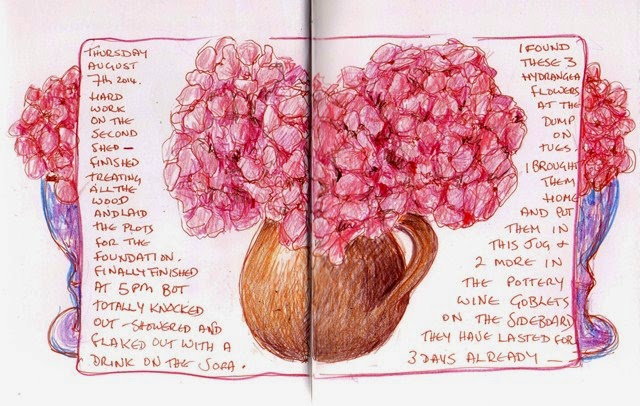 THURSDAY
AUGUST
7th 2014.
HARD
WORK
ON THE
SECOND
SHED —
FINISHED
TREATING
ALL THE
WOOD
AND LAID
THE PLOTS
FOR THE
FOUNDATION.
FINALLY FINISHED
AT 5PM BOT
TOTALLY KNACKED
OUT - SHOWERED AND
FLAKED OUT WITH A
DRINK ON THE SOFA.
I FOUND
THESE 3
HYDRANGEA
FLOWERS
AT THE
DUMP
ON
TUES.
I BROUGHT
THEM
HOME
AND PUT
THEM IN
THIS JUG +
2 MORE IN
THE POTTERY
WINE GOBLETS
ON THE SIDEBOARD
THEY HAVE LASTED FOR
3 DAYS ALREADY —